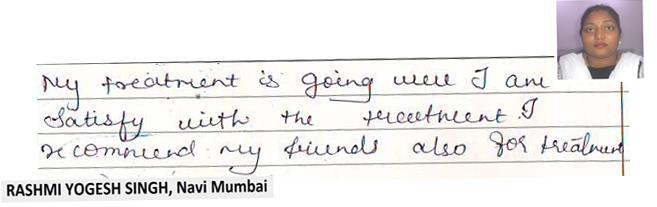 My treatment is going well I am
Satisfy with the treatment. I
recommend my friends also for treatment
RASHMI YOGESH SINGH, Navi Mumbai